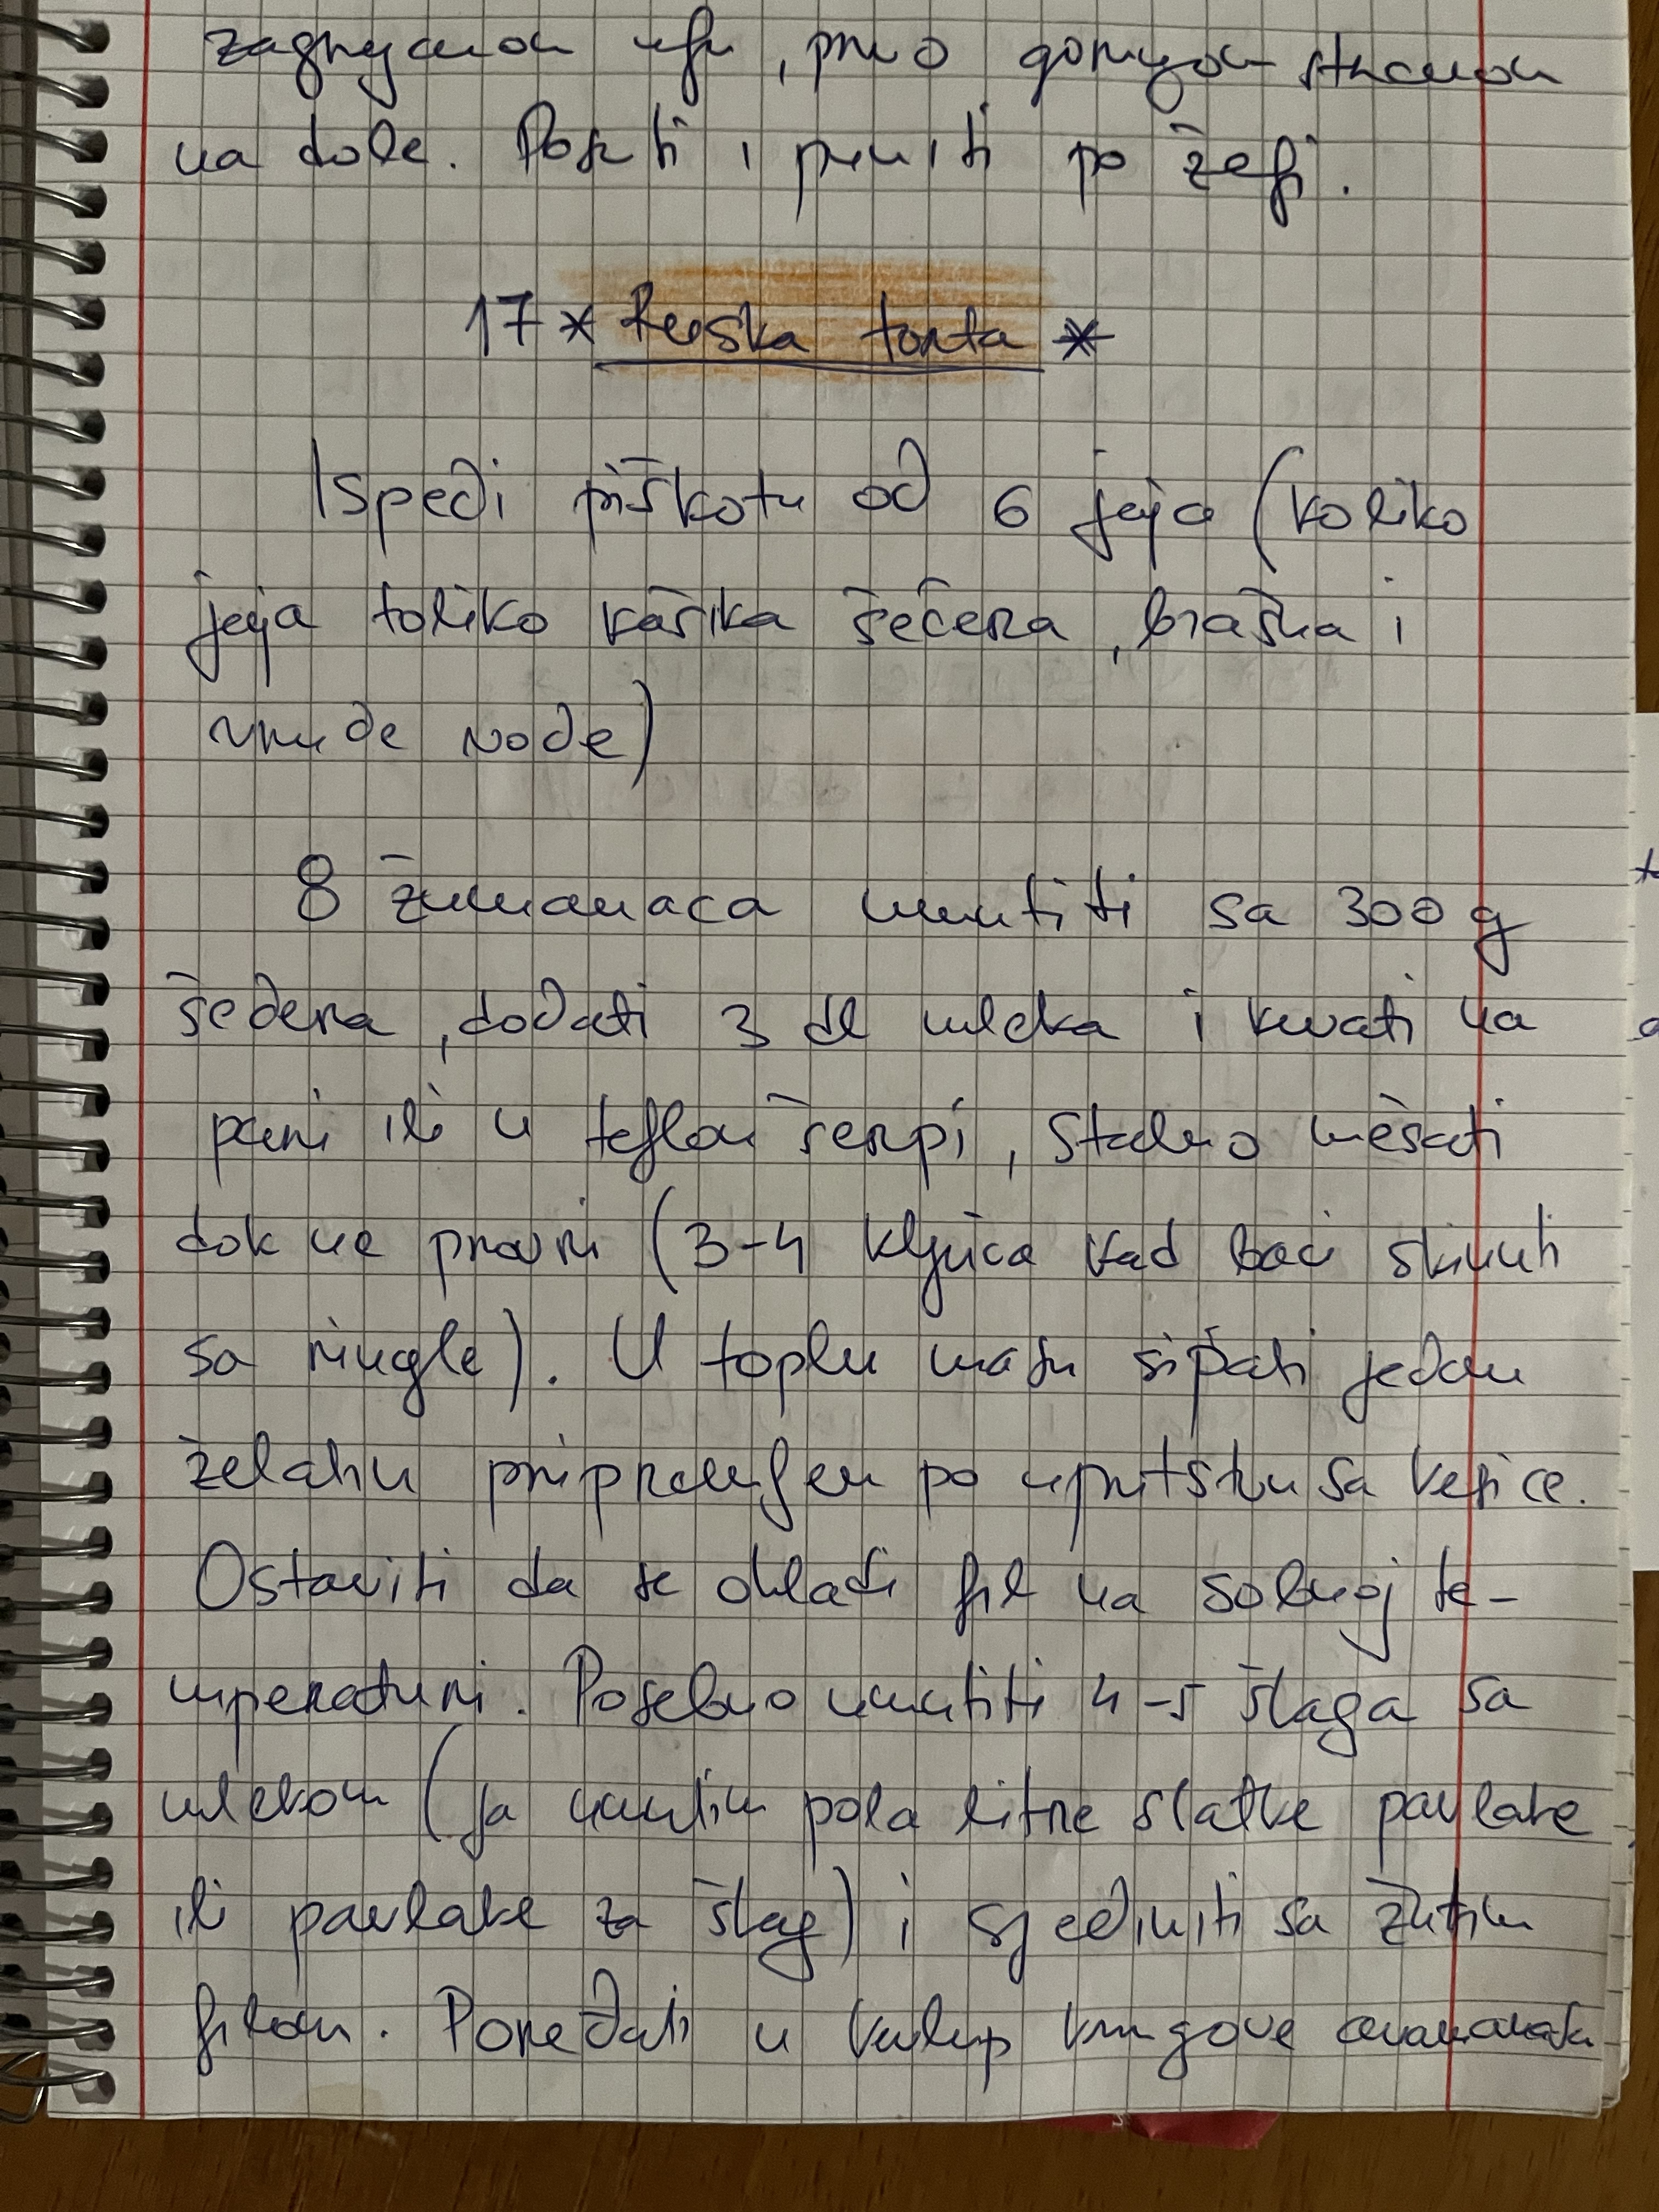 zagrejanom ulju, prvo gornjom stranom
na dole. Poslužiti i puniti po želji.
17 * Ruska torta *
Ispeći piškotu od 6 jaja (koliko
jaja toliko kašika šećera, brašna i
vruće vode)
8 žumanaca umutiti sa 300 g
šećera, dodati 3 dl mleka i kuvati na
pari ili u teflon šerpi, stalno mešati
dok ne provri (3-4 ključa kad baci skinuti
sa ringle). U toplu masu sipati jednu
želatinu pripremljenu po uputstvu sa kesice.
Ostaviti da se ohladi fil na sobnoj te-
mperaturi. Posebno umutiti 4-5 šlaga sa
mlekom (ja umutim pola litre slatke pavlake
ili pavlake za šlag) i sjediniti sa žutim
filom. Poređati u kalup krugove ananasa